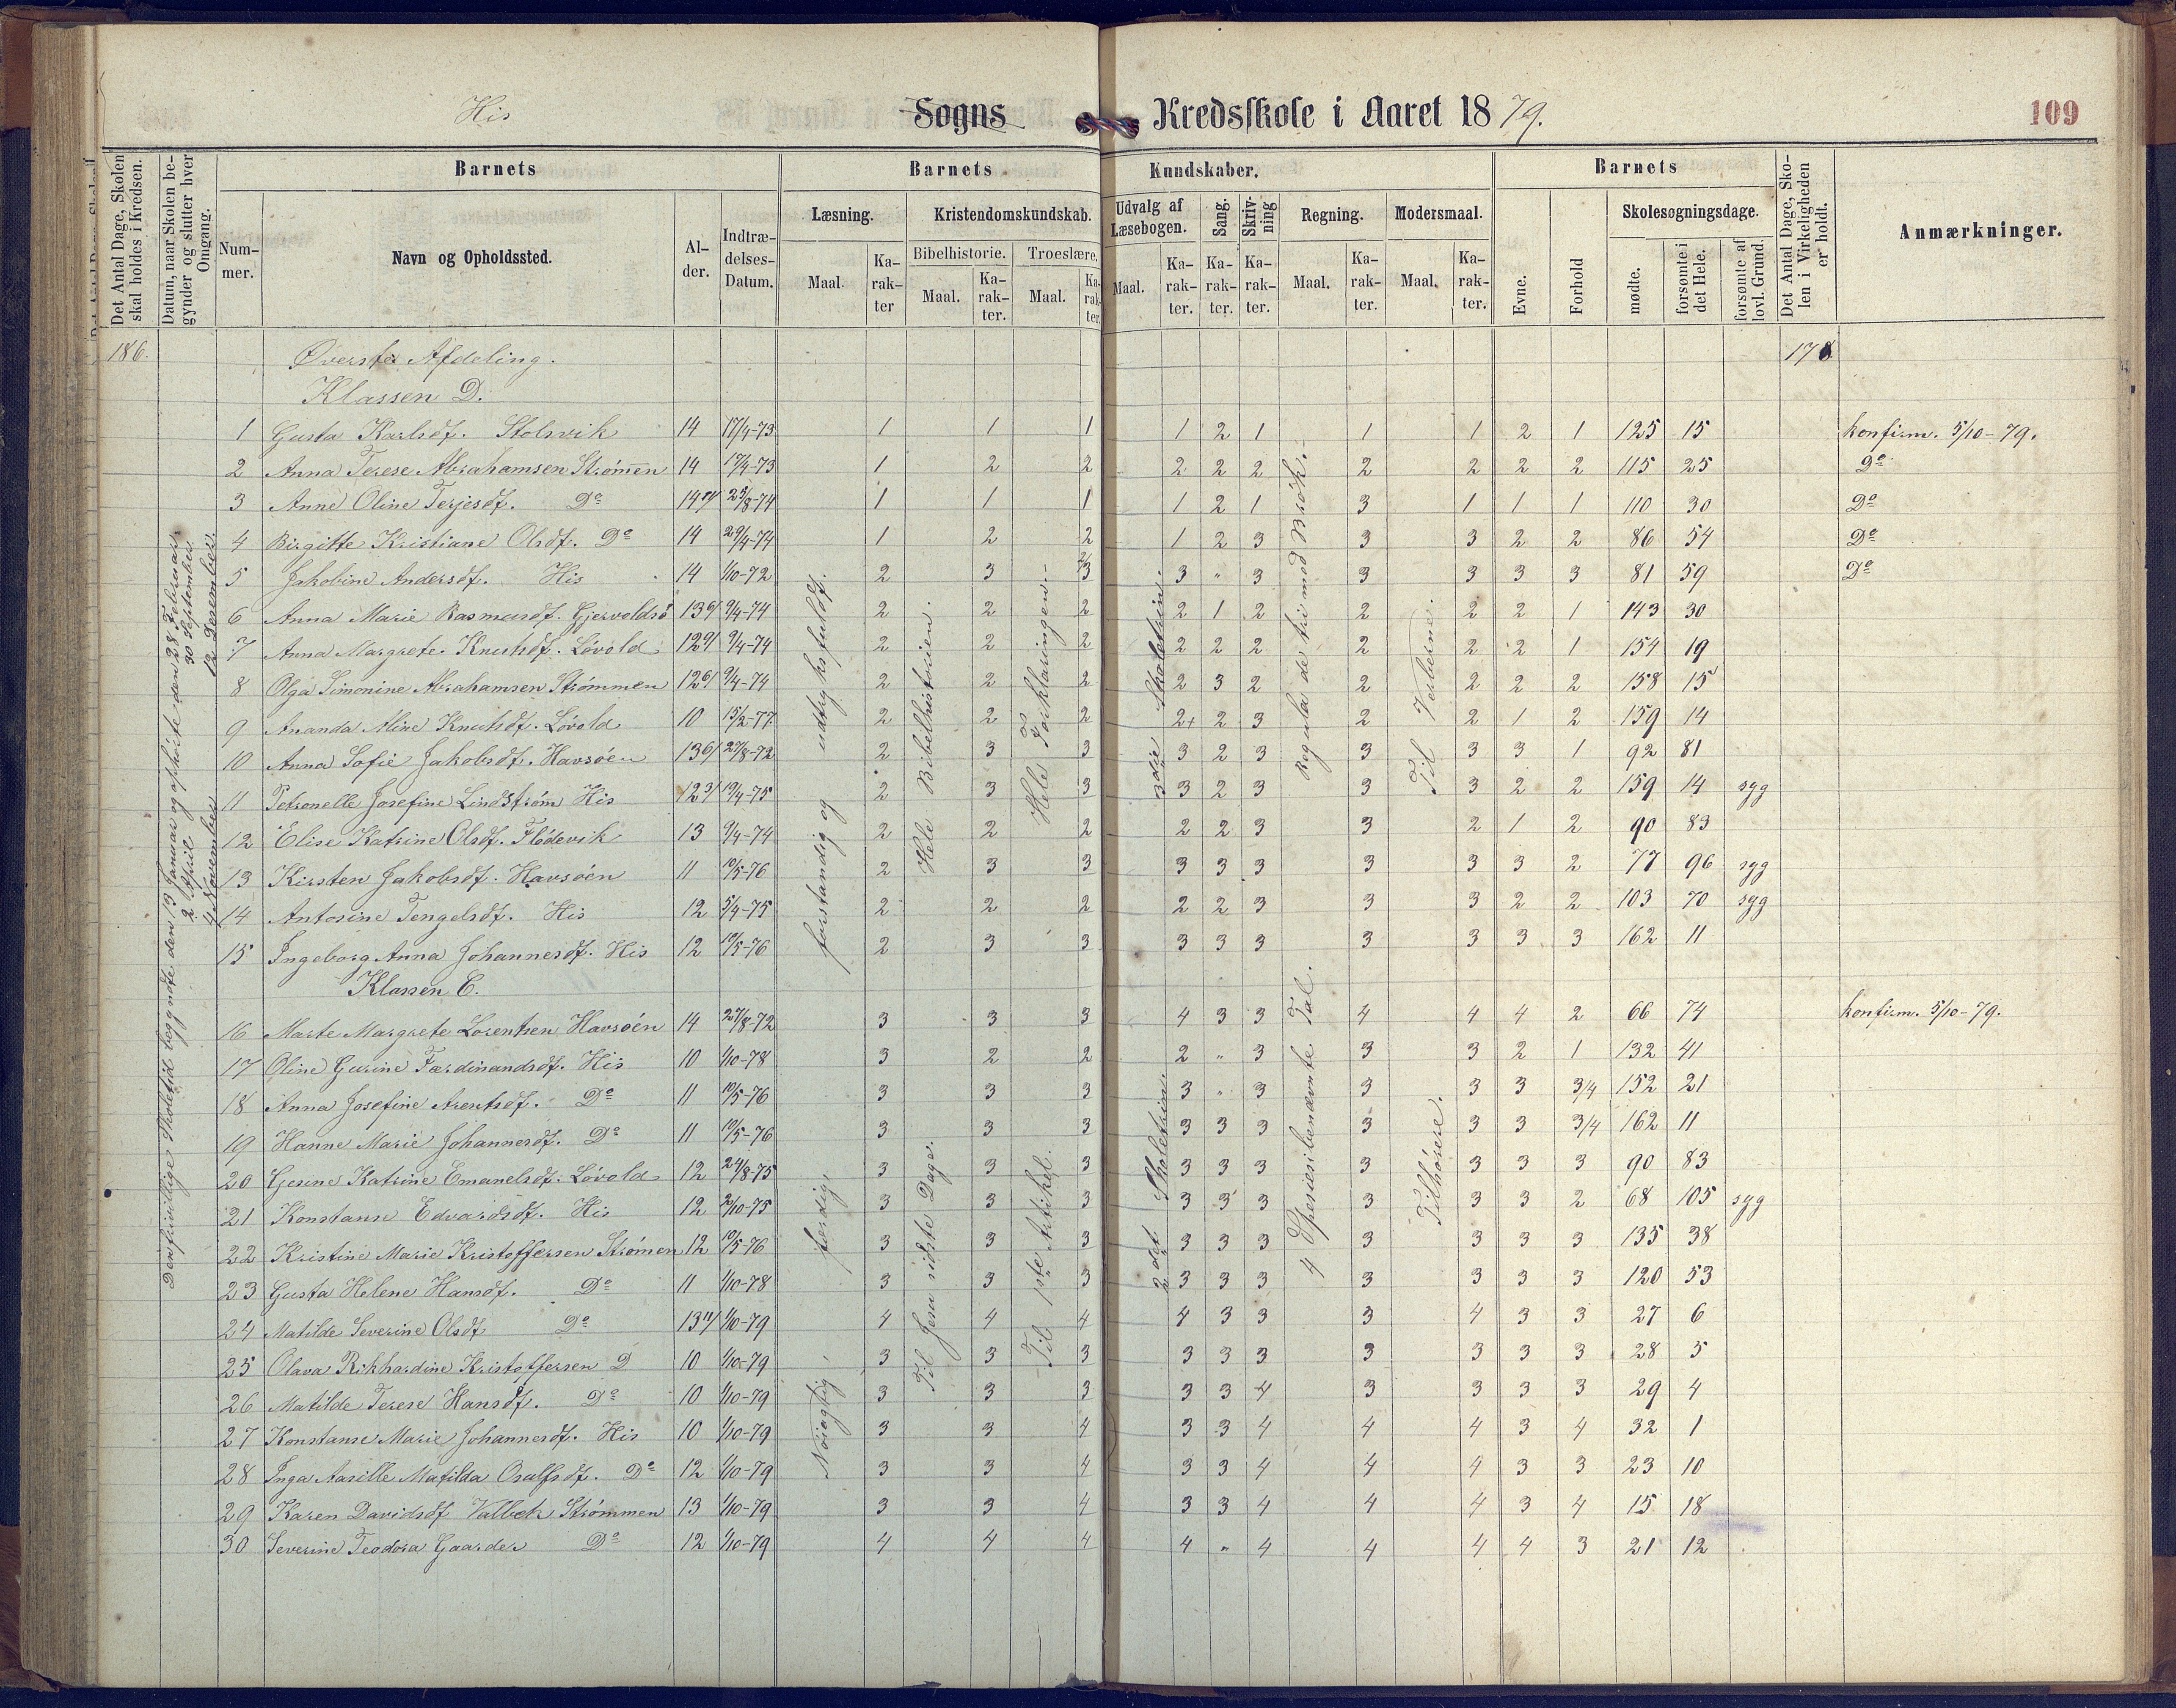 His Sogns Kredsskole i Aaret 1879. 109
Det Antal Dage, Skolen skal holdes i Kredsen.
Datum, naar Skolen begynder og slutter hver Omgang.
Barnets
Nummer.
Navn og Opholdssted.
Alder.
Indtrædelses-Datum.
Barnets Kundskaber.
Læsning.
Maal.
Karakter
Kristendomskundskab.
Bibelhistorie.
Maal.
Karakter.
Troeslære.
Maal.
Karakter.
Udvalg af Læsebogen.
Maal.
Karakter.
Sang.
Karakter.
Skrivning
Karakter.
Regning.
Maal.
Karakter.
Modersmaal.
Maal.
Karakter.
Barnets
Evne.
Forhold
Skolesøgningsdage.
mødte.
forsømte i det Hele.
forsømte af lovl. Grund.
Det Antal Dage, Skolen i Virkeligheden er holdt.
Anmærkninger.
186. Øverste Afdeling. 178
Klassen D.
1 Gusta Karlsdt. Stolsvik 14 17/4-73 1 1 1 1 2 1 1 1 2 1 125 15 konfirm. 5/10-79.
2 Anna Terese Abrahamsen Strømen 14 17/4-73 1 2 2 2 2 2 2 2 2 2 115 25 Do
3 Anne Oline Terjesdt. Do 14 23/8-74 1 1 1 1 2 1 3 1 1 1 110 30 Do
4 Birgitte Kristiane Olsdt. Do 14 29/4-74 1 2 2 1 2 3 3 3 2 2 86 54 Do
5 Jakobine Andersdt. His 14 1/10-72 2 3 3 3 " 3 3 3 3 3 81 59 Do
6 Anna Marie Rasmusdt. Gjervoldsø 13 9/4-74 2 2 2 2 1 2 2 2 2 1 143 30
7 Anna Margrete Knutsdt. Løvold 12 9/4-74 2 2 2 2 2 2 2 2 2 1 154 19
8 Olga Simonine Abrahamsen Strømmen 12 9/4-74 2 2 2 2 3 2 2 2 2 2 158 15
9 Ananda Aline Knutsdt. Løvold 10 15/2-77 2 2 2 2+ 2 3 2 2 1 2 159 14
10 Anna Sofie Jakobsdt. Havsøen 13 27/8-72 2 3 3 3 2 3 3 3 3 1 92 81
11 Petronelle Josefine Lindstrøm His 12 19/4-75 2 3 3 3 2 3 3 3 2 2 159 14 syg
12 Elise Katrine Olsdt. Flødevik 13 9/4-74 2 2 2 2 2 3 3 2 1 2 90 83
13 Kirsten Jakobsdt. Havsøen 11 10/5-76 2 3 3 3 3 3 3 3 3 2 77 96 syg
14 Antosine Tengelsdt. His 12 5/4-75 2 2 2 2 2 3 3 3 2 2 103 70 syg
15 Ingeborg Anna Johannesdt. His 12 10/5-76 2 3 3 3 3 3 3 3 3 3 162 11
Klassen C.
16 Marte Margrete Lorentsen Havsøen 14 27/8-72 3 3 3 4 3 3 4 4 4 2 66 74 konfirm. 5/10-79.
17 Oline Gurine Ferdinandsdt. His 10 1/10-78 3 2 2 2 " 3 3 3 2 1 132 41
18 Anna Josefine Arentsdt. Do 11 10/5-76 3 3 3 3 " 3 3 3 3 3/4 152 21
19 Hanne Marie Johannesdt. Do 11 10/5-76 3 3 3 3 3 3 3 3 3 3/4 162 11
20 Gjesine Katrine Emanelsdt. Løvold 12 24/8-75 3 3 3 3 3 3 3 3 3 3 90 83
21 Konstanse Edvardsdt. His 12 2/10-75 3 3 3 3 3 3 3 3 3 2 68 105 syg
22 Kristine Marie Kristoffersen Strømen 12 10/5-76 3 3 3 3 3 3 3 3 3 3 135 38
23 Gusta Helene Hansdt. Do 11 1/10-78 3 3 3 3 3 3 3 3 3 3 120 53
24 Matilde Severine Olsdt Do 13 1/10-79 4 4 4 4 3 3 3 4 3 3 27 6
25 Olava Rikhardine Kristoffersen D 10 1/10-79 3 3 3 3 3 3 3 3 3 3 28 5
26 Matilde Terese Hansdt. Do 10 1/10-79 3 3 3 3 3 4 3 3 3 3 29 4
27 Konstanse Marie Johannesdt. His 10 1/10-79 3 3 4 3 3 4 4 4 3 4 32 1
28 Inga Aasille Matilda Osulfsdt. Do 12 1/10-79 3 3 4 3 3 4 4 4 3 3 23 10
29 Karen Davidsdt Valbek Strømmen 13 1/10-79 3 3 4 3 3 4 4 4 3 4 15 18
30 Severine Teodora Gaarder Do 12 1/10-79 4 4 4 4 " 4 4 4 4 3 21 12
Den frivillige Skoletid begyndte den 13 Januar og ophørte den 28 Februar
2 April og 30 September
4 November 12 Desember.
forstandig og udtryksfuldt.
Hele Bibelhistorien.
Hele Forklaringen.
3die Skoletrin.
Regula de tri med Brøk.
Til Verberne.
Nøiagtig, ferdig,
Til Jesu sidste Dager.
Til 1ste Artikel.
2det Skoletrin.
4 Spesies i benævnte Tal.
Tilhørere.